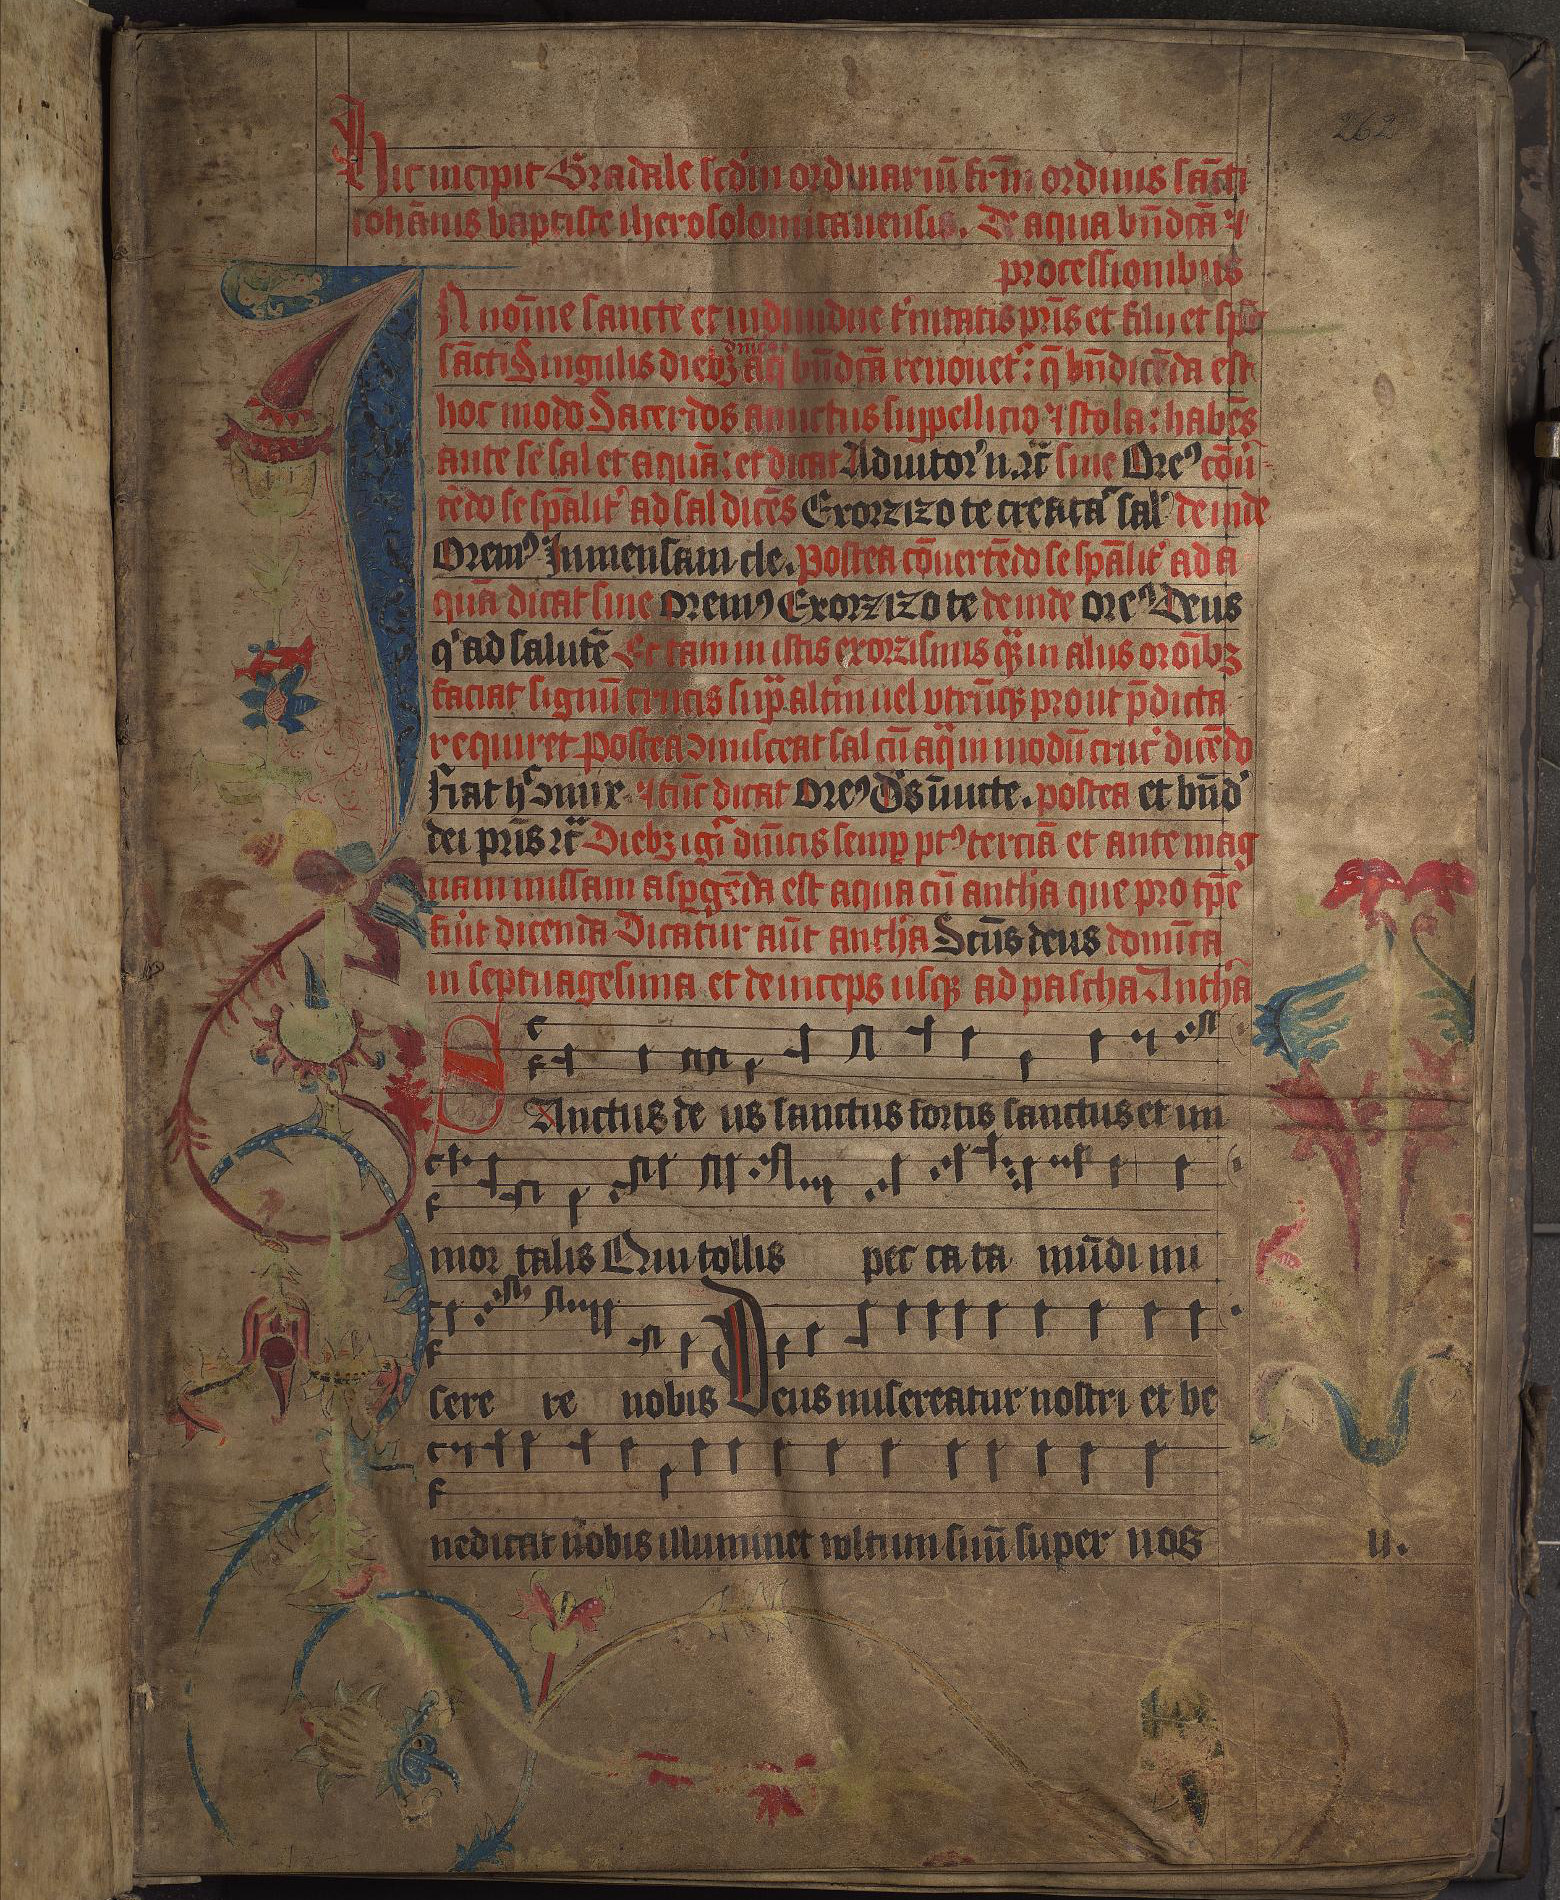 262
Hic incipit Gradale scdm ordinariū frm̄ ordinis sācti
iohānis baptiste iherosolomitanensis. De aqua bn̄dcā ⁊
processionibus
IN noīe sancte et indiuidue t'nitatis pris̄ et filii et sp̄c
sācti Singulis diebꝫ dn̄icis aq̄ bn̄dcā renouet᷑: q̄ bn̄dicēda est
hoc modo Sacerdos amictus suppellicio ⁊ stola: habēs
ante se sal et aquā: et dicat Adiutor' n. rc̄ sine Oreꝰ cōu-
tēdo se spālit' ad sal dicēs Exorzizo te creatā sal' deinde
Oremꝰ Inmensam cle. postea cōuertēdo se spālit' ad a
quā dicat sine Oremꝰ Exorzizo te deinde oreꝰ Deus
q' ad salutē Et tam in istis exorzismis qꝫ in aliis oroībꝫ
faciat signū crucis sup̄ altm̄ uel vtrūqꝫ prout p̄dicta
requiret Postea ɔmisceat sal cū aq̄ in modū cruc' dicēdo
Fiat h̄ ɔmix. ⁊ tūc dicat Oreꝰ Ds̄ īuicte. postea et bn̄d'
dei pris̄ rc̄ Diebꝫ igr̄ dn̄icis semꝑ ptꝰ terciā et ante mag
nam missam aspgēda est aqua cū antha que pro tpē
fūit dicenda Dicatur aūt antha Scūs deus domīca
in septuagesima et deinceps usqꝫ ad pascha Anthā
SAnctus de us sanctus fortis sanctus et im
mor talis Qui tollis pec ca ta mūdi mi
sere re nobis Deus misereatur nostri et be
nedicat nobis illuminet wltum suū super nos
ii.